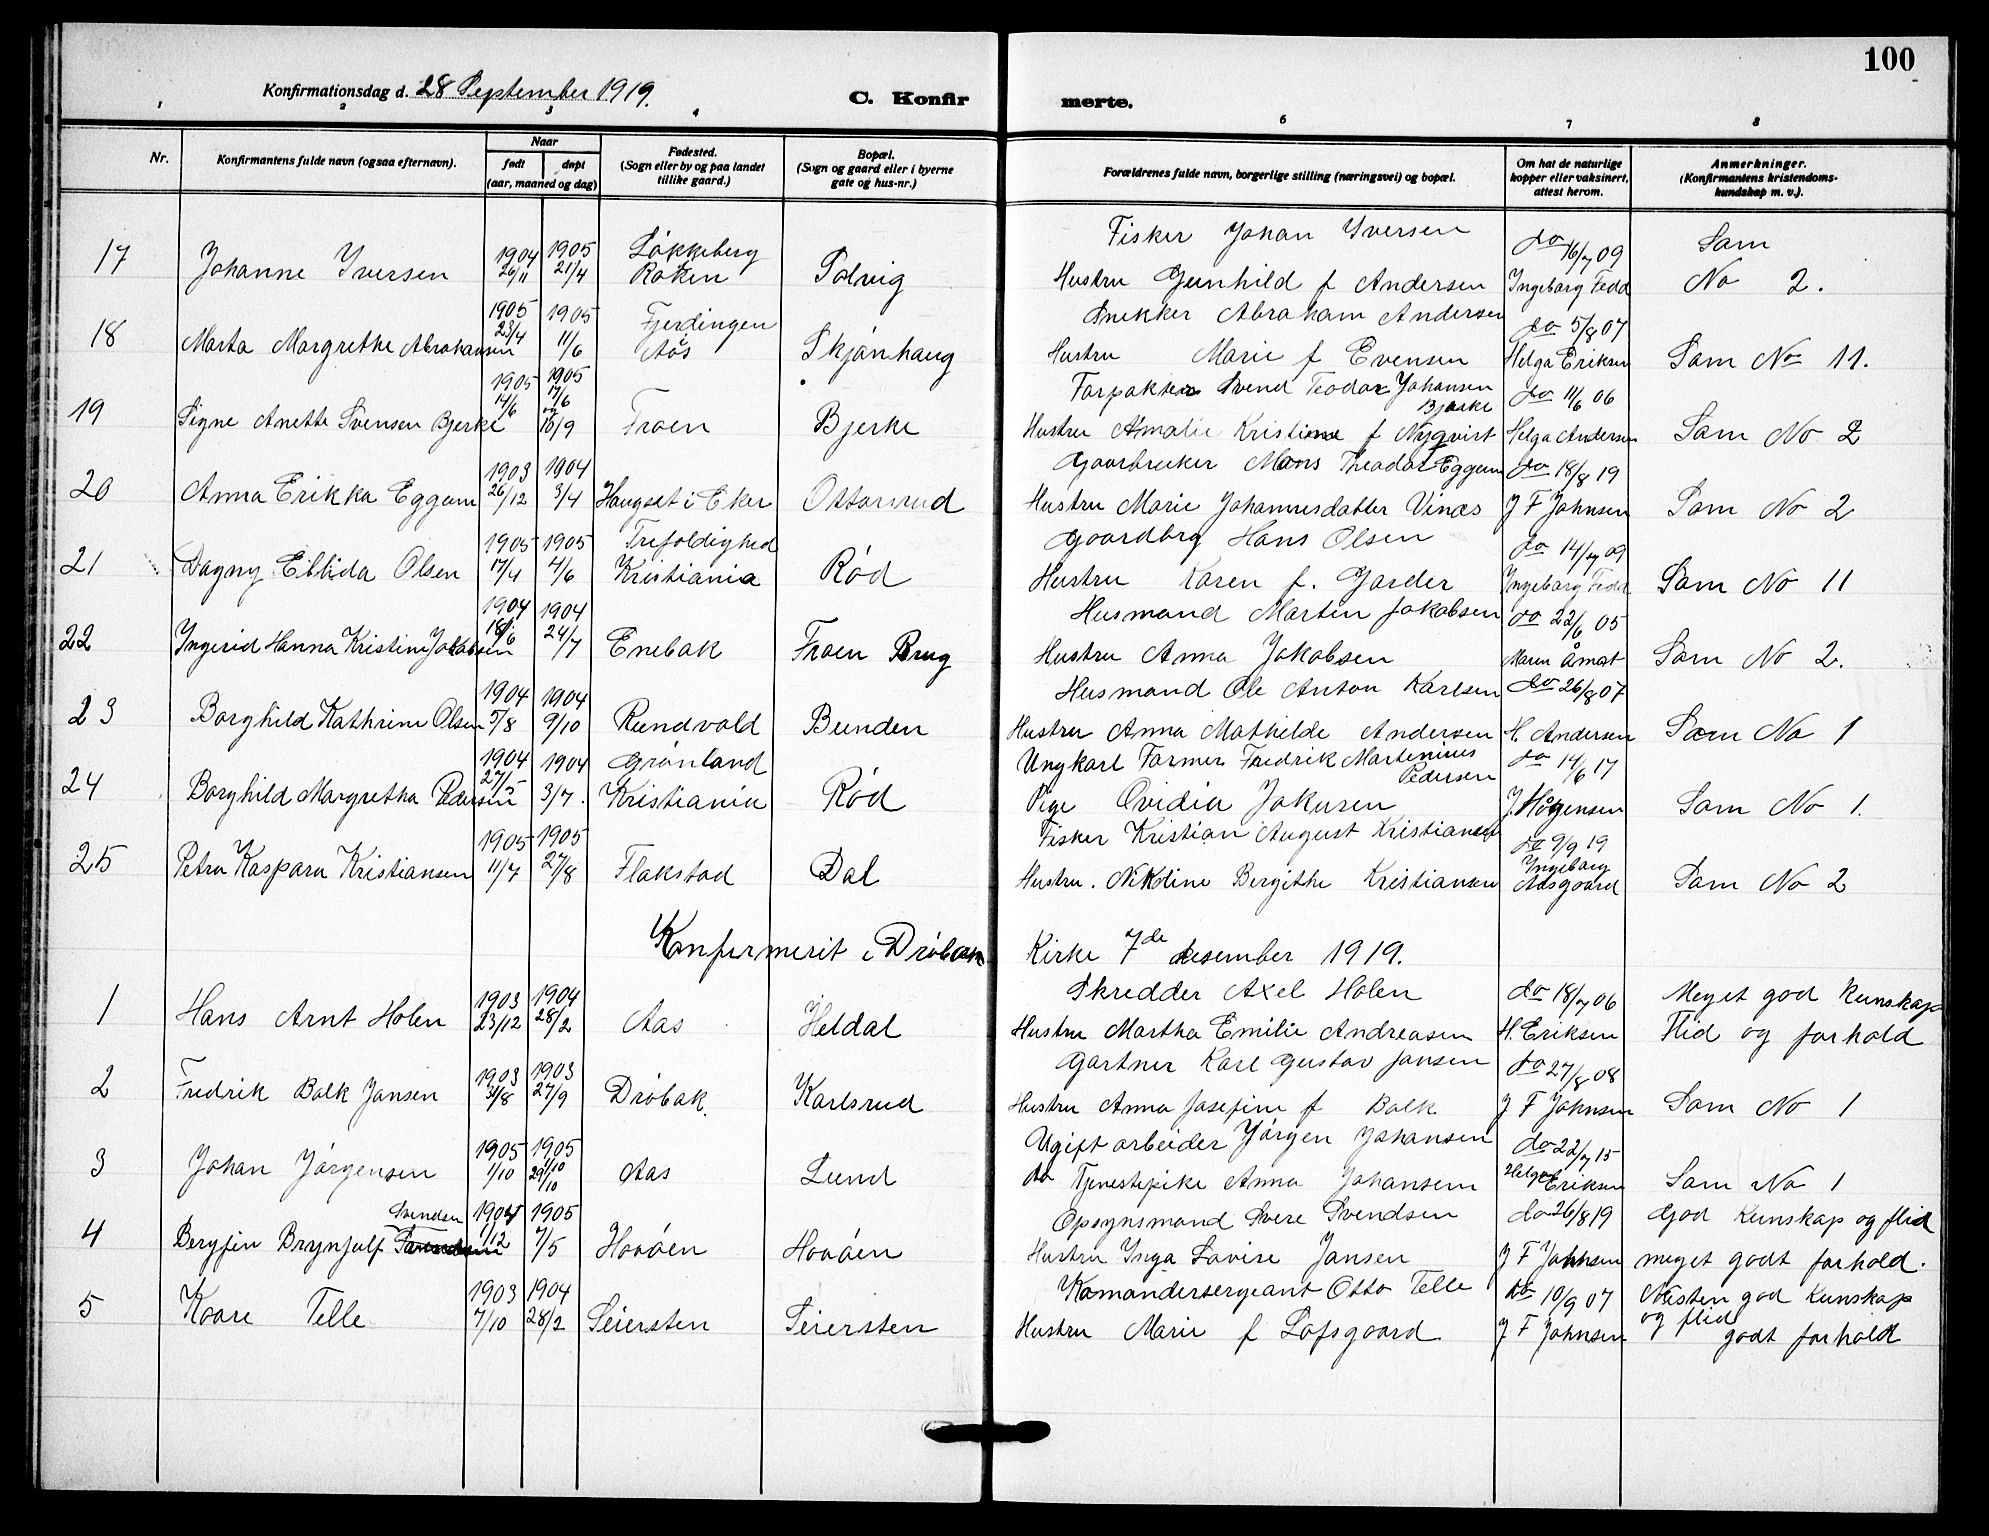 100
Konfirmationsdag d. 28 September 1919.
C. Konfir merte.
1 2 3 4 6 7 8
Nr. Konfirmantens fulde navn (ogsaa efternavn). Naar født døpt (aar, maaned og dag) Fødested. (Sogn eller by og paa landet tillike gaard.) Bopæl. (Sogn og gaard eller i byerne gate og hus-nr.) Forældrenes fulde navn, borgerlige stilling (næringsvei) og bopæl. Om hat de naturlige kopper eller vaksinert, attest herom. Anmerkninger. (Konfirmantens kristendoms-kundskap m. v.).
17 Johanne Iversen 1904 26/11 1905 21/4 Løkkeberg Røken Solvig Fisker Johan Iversen Hustru Gunhild f Andersen do 16/7 09 Ingeborg Fedd Som No 2.
18 Marta Margrethe Abrahamsen 1905 23/4 1905 11/6 Fjerdingen Aas Skjønhaug Snekker Abraham Andersen Hustru Marie f Evensen do 5/8 07 Helga Eriksen Som No 11.
19 Signe Anette Svensen Bjerke 1905 14/6 1905 17/6 og 10/9 Froen Bjerke Forpakter Svend Teodor Johansen Bjerke Hustru Amalie Kristine f Nyqvist do 11/6 06 Helga Andersen Som No 2
20 Anna Erikka Eggum 1903 26/12 1904 3/4 Haugset i Eker Ottarsrud Gaarbruker Mons Theodor Eggum Hustru Marie Johannesdatter Vinæs do 18/8 19 J F Johnsen Som No 2
21 Dagny Ellida Olsen 1905 17/4 1905 4/6 Trefoldighed Kristiania Rød Gaardbrg Hans Olsen Hustru Karen f. Garder do 14/7 09 Ingeborg Fedd Som No 11
22 Ingerid Hanna Kristine Jakobsen 1904 18/6 1904 24/7 Enebak Froen Brug Husmand Martin Jakobsen Hustru Anna Jakobsen do 22/6 05 Maren Åmot Som No 2.
23 Borghild Kathrine Olsen 1904 5/8 1904 9/10 Rundvold Bunden Husmand Ole Anton Karlsen Hustru Anna Mathilde Andersen do 26/8 07 H. Andersen Som No 1
24 Borghild Margretha Pedersen 1904 27/5 1904 3/7. Grønland Kristiania Rød Ungkarl Former Fredrik Martinius Pedersen Pige Ovidia Jokuren do 14/6 17 J. Høgensen Som No 1.
25 Petra Kaspara Kristiansen 1905 11/7 1905 27/8 Flakstad Dal Fisker Kristian August Kristiansen Hustru. Nikoline Bergithe Kristiansen do 9/9 19 Ingeborg Aasgaard Som No 2
Konfirmerit i Drøbak Kirke 7de desember 1919.
1 Hans Arnt Holen 1903 23/12 1904 28/2 Aas Heldal Skredder Axel Holen Hustru Martha Emilie Andreasen do 18/7 06 H. Eriksen Meget god kunskap Flid og forhold
2 Fredrik Balk Jansen 1903 3/8 1903 27/9 Drøbak. Karlsrud Gartner Karl Gustav Jansen Hustru Anna Josefine f Balk do 27/8 08 J F Johnsen Som No 1
3 Johan Jørgensen 1905 1/10 1905 29/10 Aas Lund Ugift arbeider Jørgen Johansen do Tjenestepike Anna Johansen do 22/7 15 Helga Eriksen Som No 1
4 Bergfin Brynjulf Svendsen 1904 1/12 1905 7/5 Haaøen Haaøen Opsynsmand Svere Svendsen Hustru Inga Lovise Jansen do 26/8 19 J F Johnsen God kunskap og flid meget godt forhold.
5 Kaare Telle 1903 7/10 1904 28/2 Seiersten Seiersten Komandersergeant Otto Telle Hustru Marie f Lofsgaard do 10/9 07 J F Johnsen Næsten god kunskap og flid godt forhold